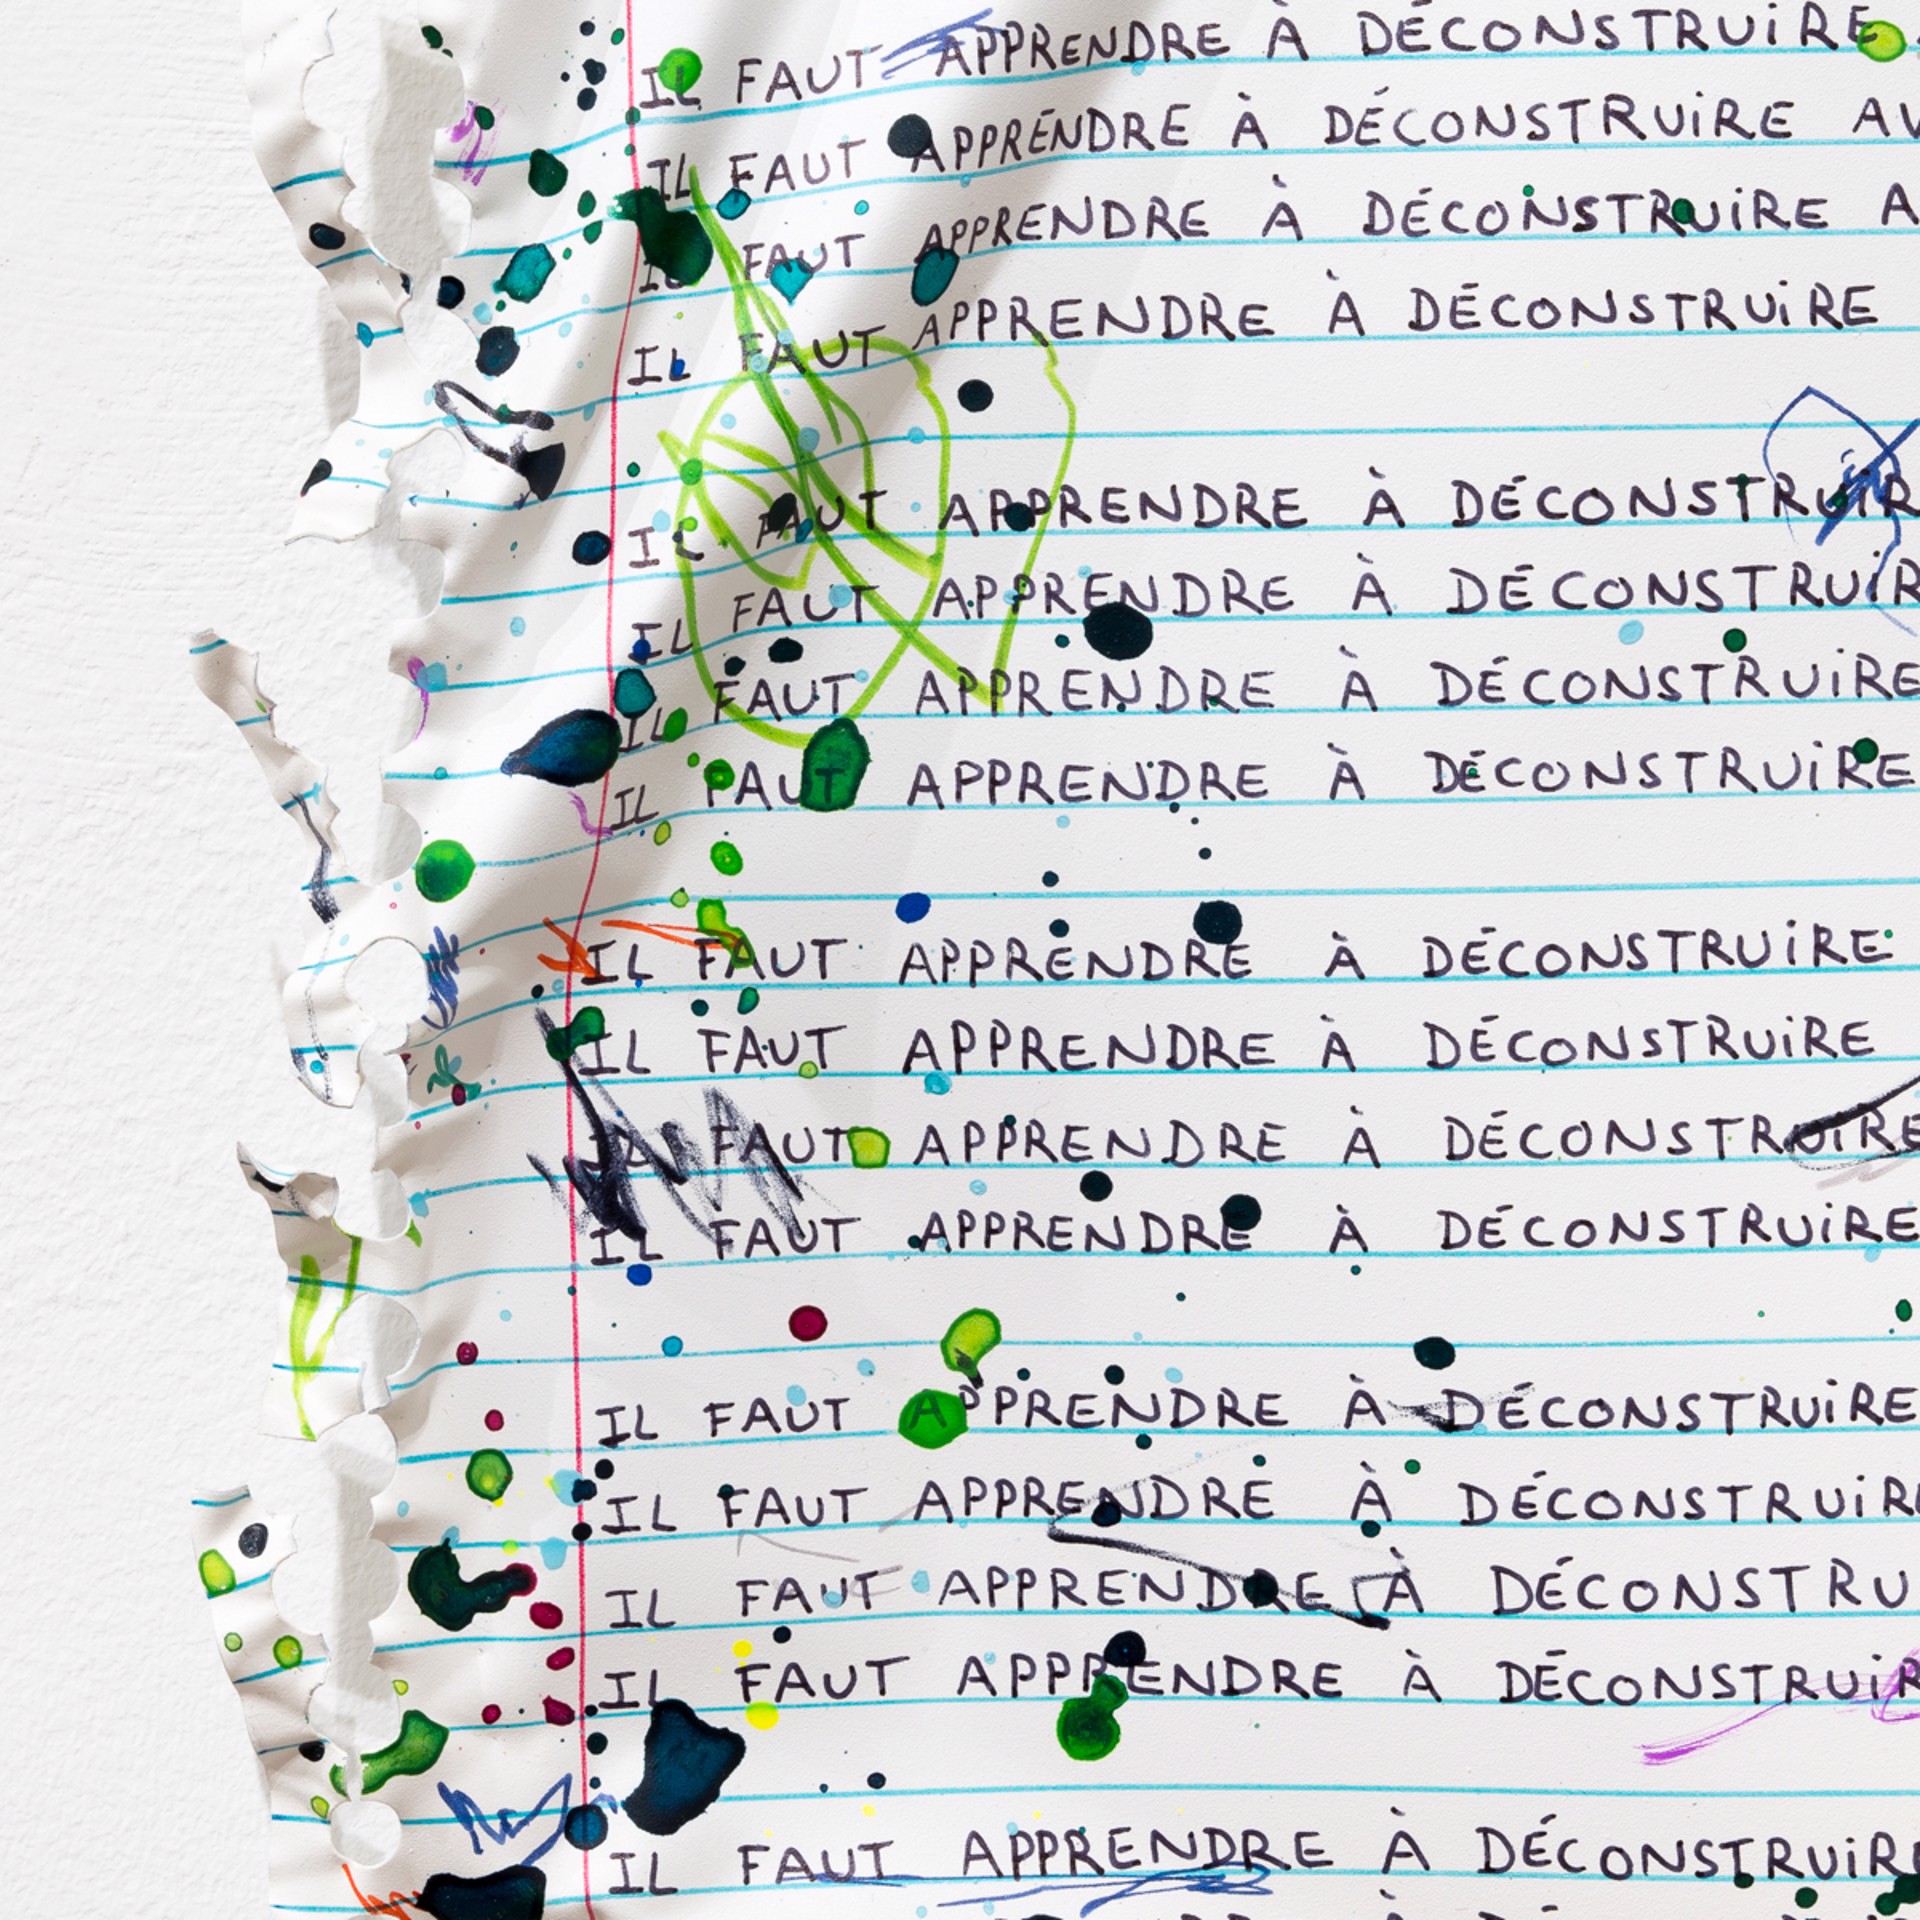 IL FAUT APPRENDRE À DÉCONSTRUIRE
IL FAUT APPRENDRE À DÉCONSTRUIRE AV
IL FAUT APPRENDRE À DÉCONSTRUIRE A
IL FAUT APPRENDRE À DÉCONSTRUIRE
IL FAUT APPRENDRE À DÉCONSTRUIR
IL FAUT APPRENDRE À DÉCONSTRUIR
IL FAUT APPRENDRE À DÉCONSTRUIRE
IL FAUT APPRENDRE À DÉCONSTRUIRE
IL FAUT APPRENDRE À DÉCONSTRUIRE
IL FAUT APPRENDRE À DÉCONSTRUIRE
FAUT APPRENDRE À DÉCONSTRUIRE
IL FAUT APPRENDRE À DÉCONSTRUIRE
IL FAUT APPRENDRE À DÉCONSTRUIRE
IL FAUT APPRENDRE À DÉCONSTRUIR
IL FAUT APPRENDRE À DÉCONSTRU
IL FAUT APPRENDRE À DÉCONSTRUIR
IL FAUT APPRENDRE À DÉCONSTRUIRE